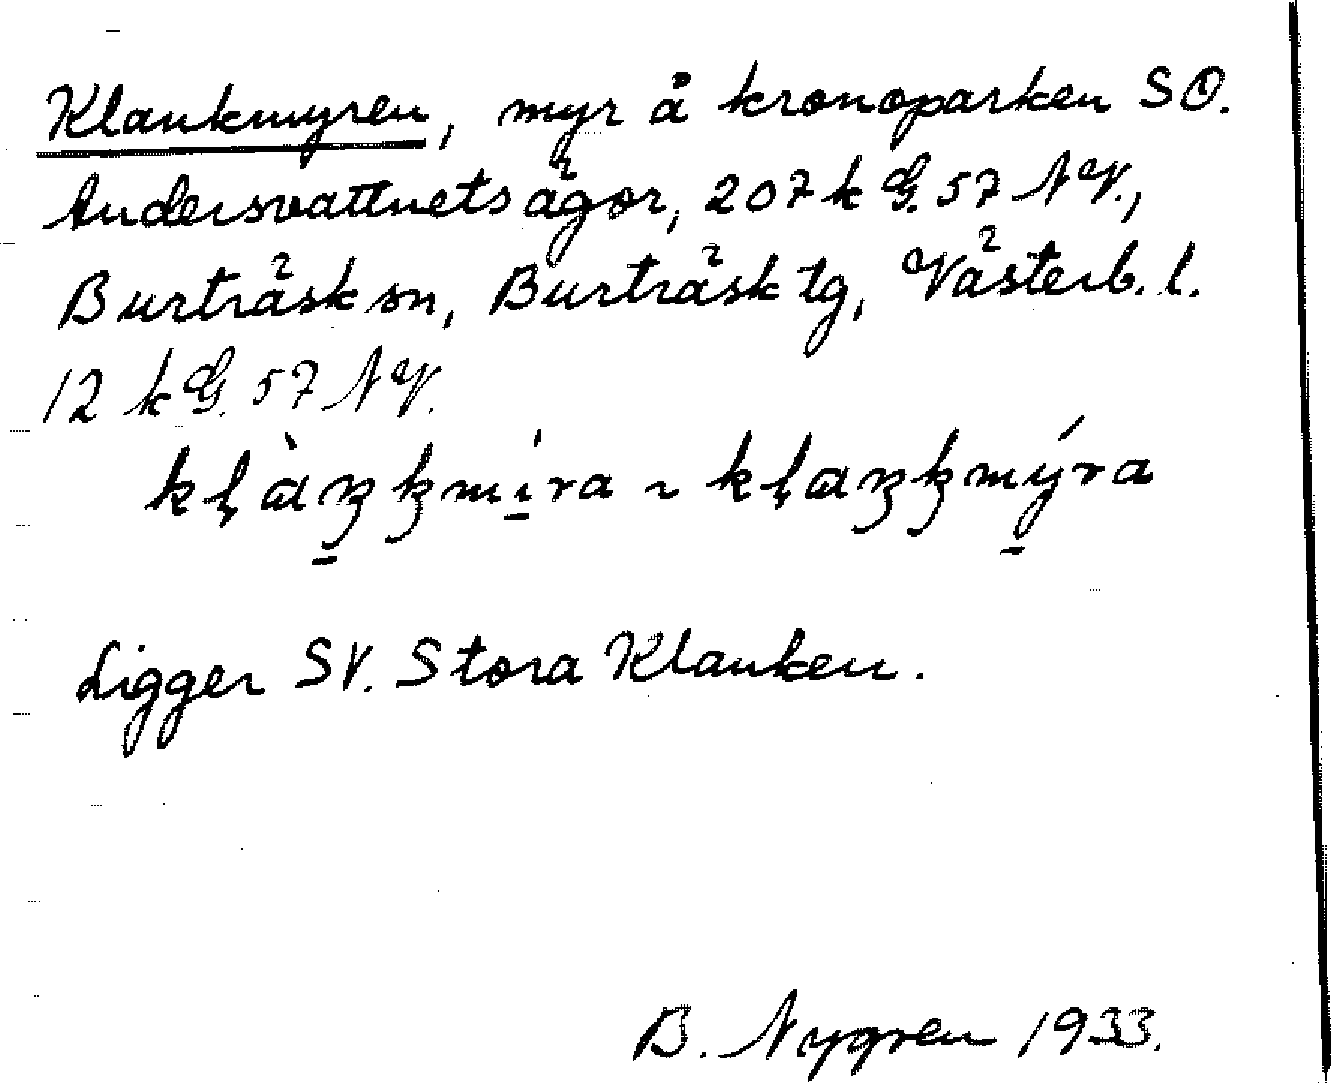 Klankmyren, myr å kronoparken SO.
Andersvattnets ägor, 207 k G. 57 NV.,
Burträsk sn, Burträsk tg, Västerb. l.
12 k G. 57 NV.
Ligger SV. Stora Klanken.
B. Nygren 1933.